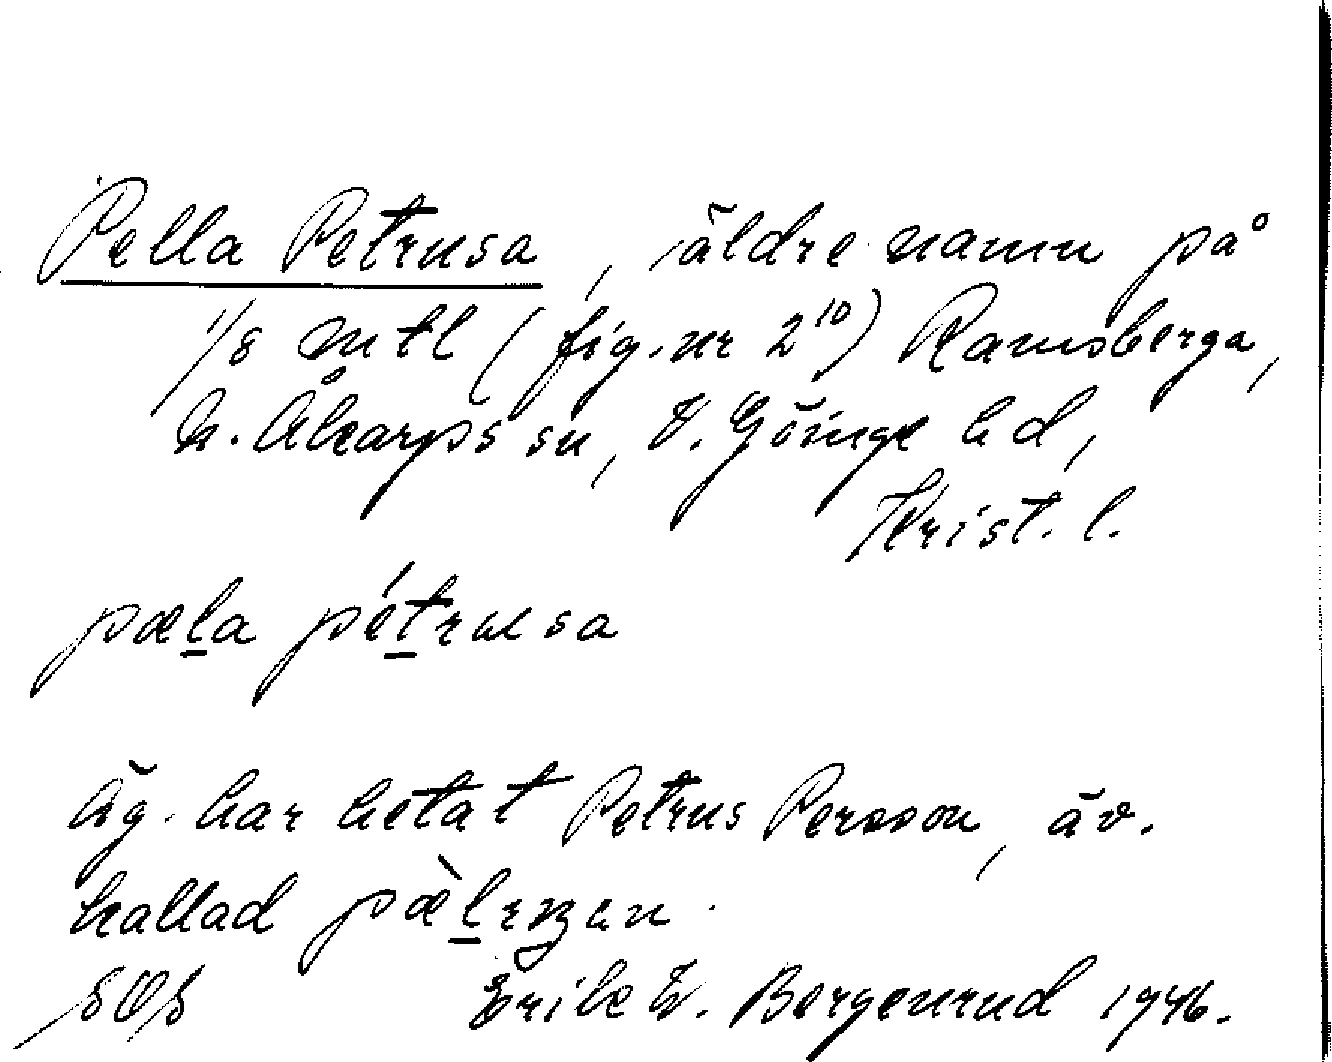 Pella Petrusa, äldre namn på
1/8 mtl (fig. nr 2¹⁰) Ramsberga,
N. Åkarps sn, V. Göinge hd,
Krist. l.
pæl̲a pét̲rusa
Äg. har hetat Petrus Persson, äv.
kallad
SOS Erik W. Bergenrud 1946.